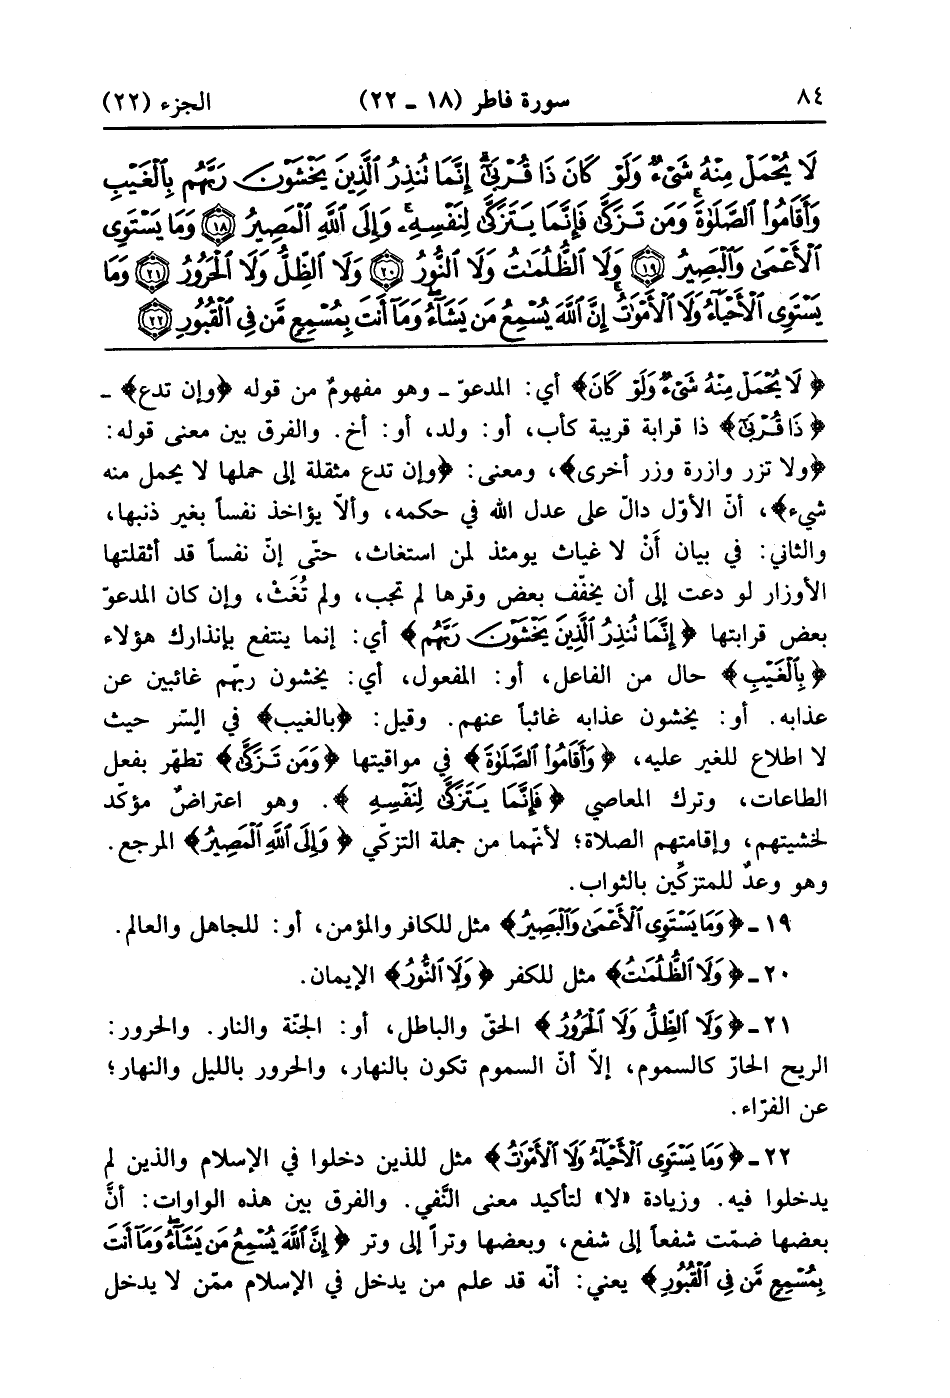 ٨٤ سورة فاطر (١٨ ـ ٢٢) الجزء (٢٢)
لَا يُحْمَلْ مِنْهُ شَىْءٌ وَلَوْ كَانَ ذَا قُرْبَىٰٓ إِنَّمَا تُنذِرُ ٱلَّذِينَ يَخْشَوْنَ رَبَّهُم بِٱلْغَيْبِ
وَأَقَامُوا۟ ٱلصَّلَوٰةَ وَمَن تَزَكَّىٰ فَإِنَّمَا يَتَزَكَّىٰ لِنَفْسِهِۦ وَإِلَى ٱللَّهِ ٱلْمَصِيرُ ١٨ وَمَا يَسْتَوِى
ٱلْأَعْمَىٰ وَٱلْبَصِيرُ ١٩ وَلَا ٱلظُّلُمَٰتُ وَلَا ٱلنُّورُ ٢٠ وَلَا ٱلظِّلُّ وَلَا ٱلْحَرُورُ ٢١ وَمَا
يَسْتَوِى ٱلْأَحْيَآءُ وَلَا ٱلْأَمْوَٰتُ إِنَّ ٱللَّهَ يُسْمِعُ مَن يَشَآءُ وَمَآ أَنتَ بِمُسْمِعٍ مَّن فِى ٱلْقُبُورِ ٢٢
﴿لَا يُحْمَلْ مِنْهُ شَىْءٌ وَلَوْ كَانَ﴾ أي: المدعوّ ـ وهو مفهومٌ من قوله ﴿وإن تدع﴾ ـ
﴿ذَا قُرْبَىٰٓ﴾ ذا قرابة قريبة كأب، أو: ولد، أو: أخ. والفرق بين معنى قوله:
﴿ولا تزر وازرة وزر أخرى﴾، ومعنى: ﴿وإن تدع مثقلة إلى حملها لا يحمل منه
شيء﴾، أنّ الأوّل دالّ على عدل الله في حكمه، وألاّ يؤاخذ نفساً بغير ذنبها،
والثاني: في بيان أَنْ لا غياث يومئذ لمن استغاث، حتّى إنّ نفساً قد أثقلتها
الأوزار لو دعت إلى أن يخفّف بعض وقرها لم تجب، ولم تُغَثْ، وإن كان المدعوّ
بعض قرابتها ﴿إِنَّمَا تُنذِرُ ٱلَّذِينَ يَخْشَوْنَ رَبَّهُم﴾ أي: إنما ينتفع بإنذارك هؤلاء
﴿بِٱلْغَيْبِ﴾ حال من الفاعل، أو: المفعول، أي: يخشون ربّهم غائبين عن
عذابه. أو: يخشون عذابه غائباً عنهم. وقيل: ﴿بالغيب﴾ في السّر حيث
لا اطلاع للغير عليه، ﴿وَأَقَامُوا۟ ٱلصَّلَوٰةَ﴾ في مواقيتها ﴿وَمَن تَزَكَّىٰ﴾ تطهّر بفعل
الطاعات، وترك المعاصي ﴿فَإِنَّمَا يَتَزَكَّىٰ لِنَفْسِهِ﴾. وهو اعتراضٌ مؤكّد
لخشيتهم، وإقامتهم الصلاة؛ لأنّهما من جملة التزكّي ﴿وَإِلَى ٱللَّهِ ٱلْمَصِيرُ﴾ المرجع.
وهو وعدٌ للمتزكِّين بالثواب.
١٩ ـ ﴿وَمَا يَسْتَوِى ٱلْأَعْمَىٰ وَٱلْبَصِيرُ﴾ مثل للكافر والمؤمن، أو: للجاهل والعالم.
٢٠ ـ ﴿وَلَا ٱلظُّلُمَٰتُ﴾ مثل للكفر ﴿وَلَا ٱلنُّورُ﴾ الإيمان.
٢١ ـ ﴿وَلَا ٱلظِّلُّ وَلَا ٱلْحَرُورُ﴾ الحقّ والباطل، أو: الجنّة والنار. والحرور:
الريح الحارّ كالسموم، إلاّ أنّ السموم تكون بالنهار، والحرور بالليل والنهار؛
عن الفرّاء.
٢٢ ـ ﴿وَمَا يَسْتَوِى ٱلْأَحْيَآءُ وَلَا ٱلْأَمْوَٰتُ﴾ مثل للذين دخلوا في الإسلام والذين لم
يدخلوا فيه. وزيادة «لا» لتأكيد معنى النَّفي. والفرق بين هذه الواوات: أنَّ
بعضها ضمّت شفعاً إلى شفع، وبعضها وتراً إلى وتر ﴿إِنَّ ٱللَّهَ يُسْمِعُ مَن يَشَآءُ وَمَآ أَنتَ
بِمُسْمِعٍ مَّن فِى ٱلْقُبُورِ﴾ يعني: أنّه قد علم من يدخل في الإسلام ممّن لا يدخل